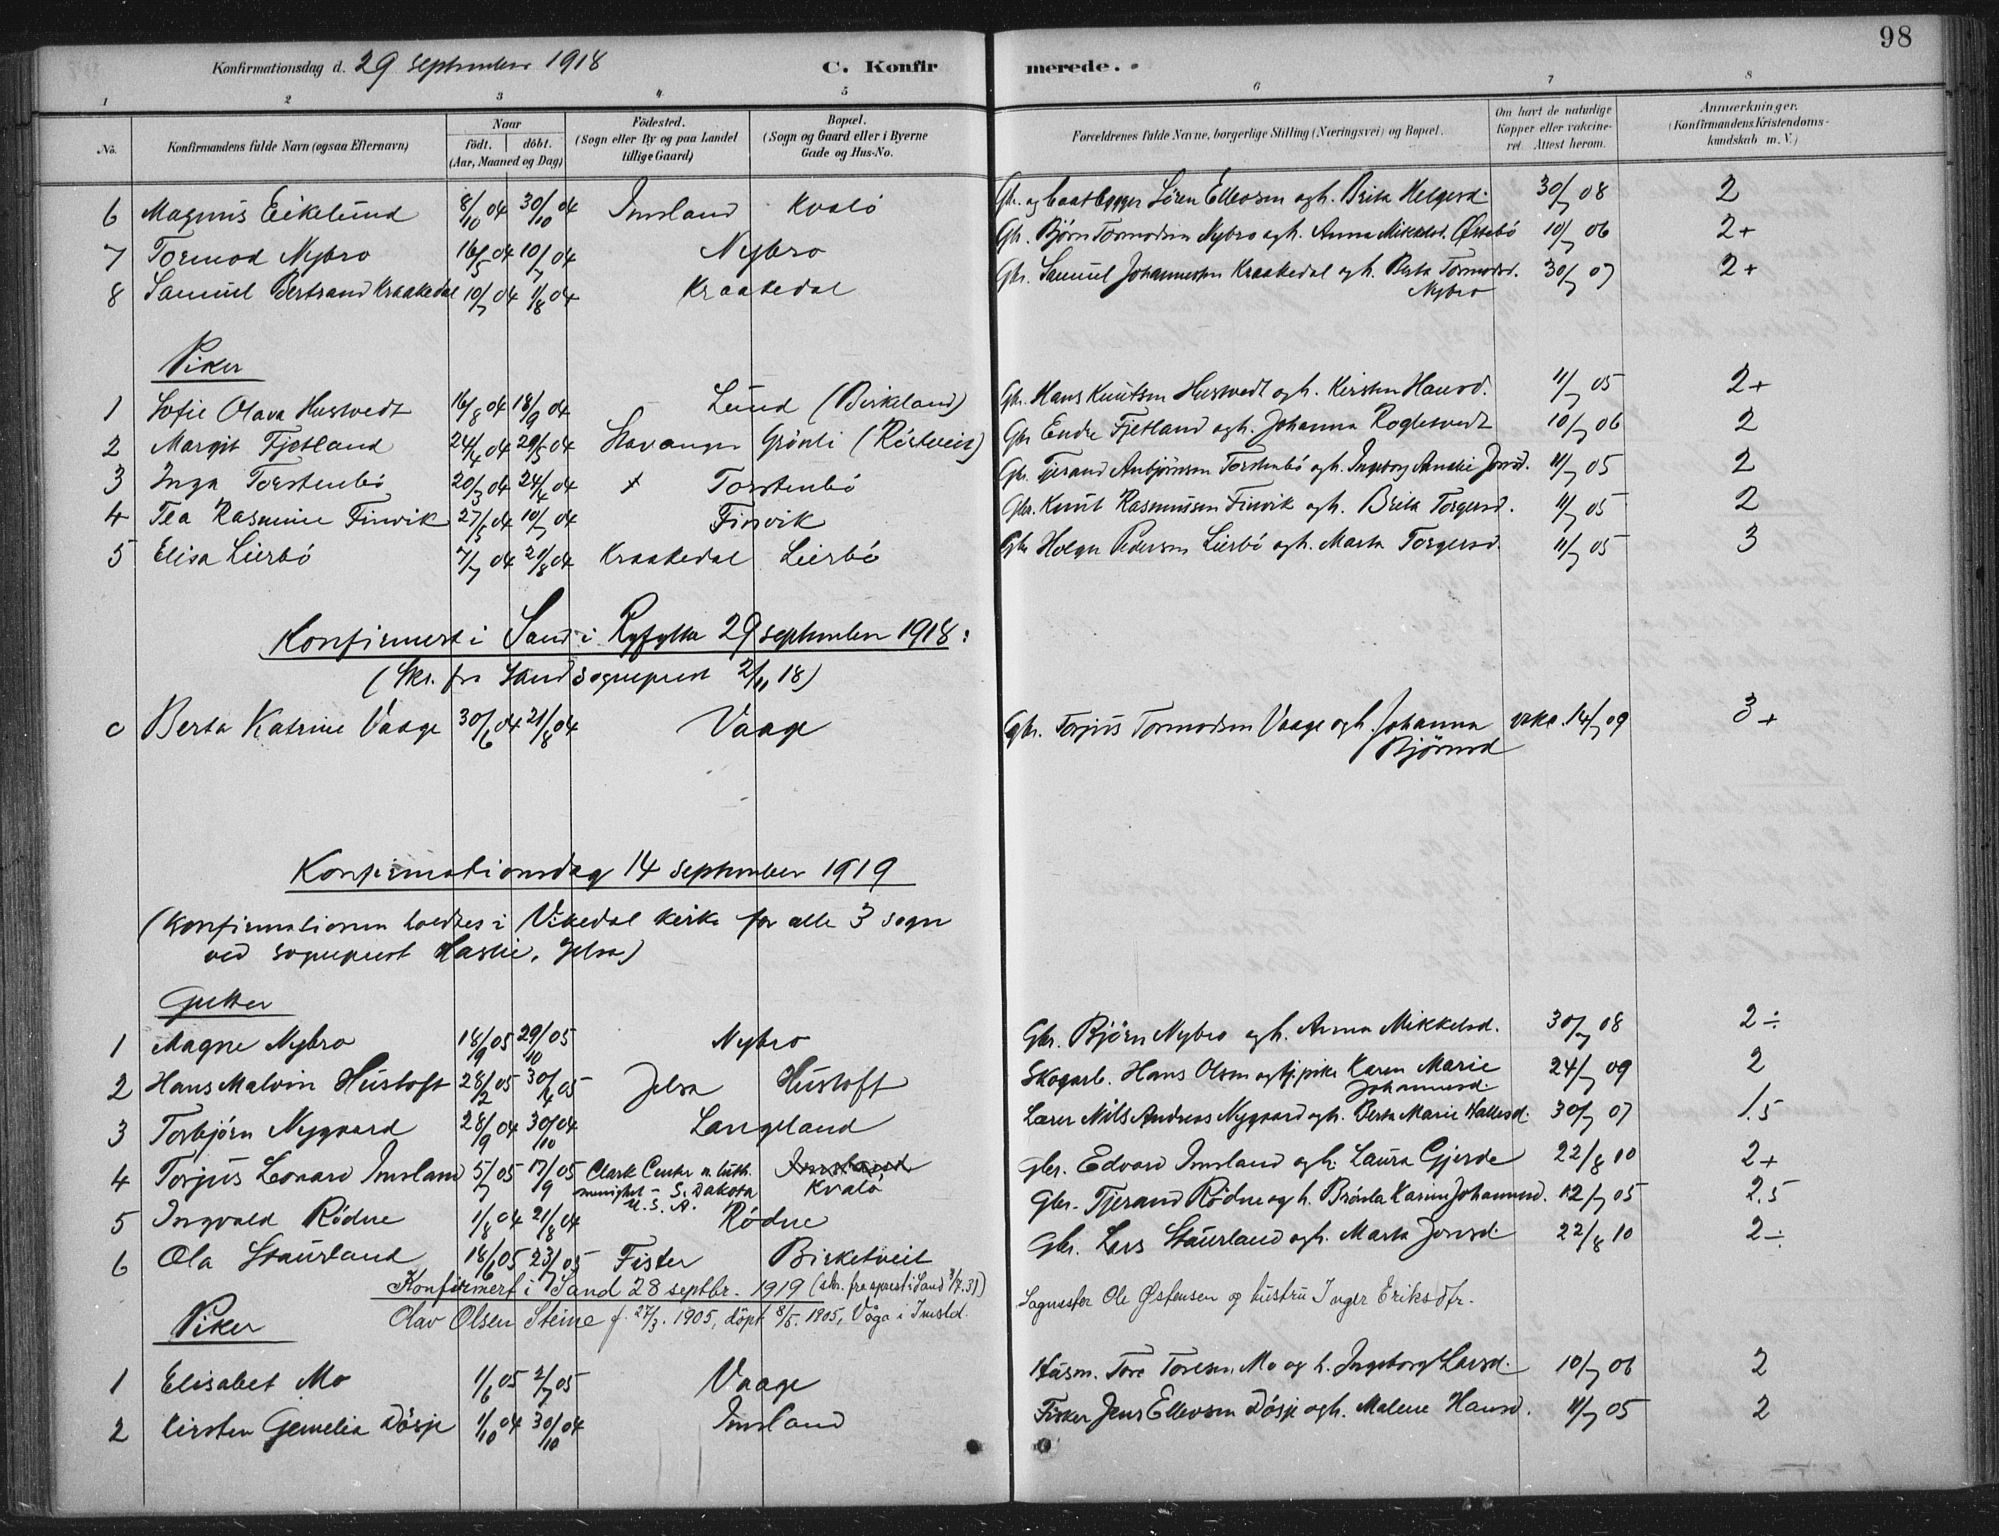 98
Konfirmationsdag d. 29 september 1918 C. Konfirmerede.
1 2 3 4 5 6 7 8
No. Konfirmandens fulde Navn (ogsaa Efternavn) Naar födt. döbt. (Aar, Maaned og Dag) Födested. (Sogn eller By og paa Landet tillige Gaard) Bopæl. (Sogn og Gaard eller i Byerne Gade og Hus-No. Forældrenes fulde Navne, borgerlige Stilling (Næringsvei) og Bopæl. Om havt de naturlige Kopper eller vakcineret. Attest herom. Anmærkninger. (Konfirmandens Kristendomskundskab m. V.)
6 Magnus Eikelund 8/10 04 30/10 04 Imsland Kvalö Gbr. og baatbygger Sören Ellevsen og h. Brita Helgesd. 30/7 08 2
7 Tormod Nybro 16/5 04 10/7 04 Nybro Gbr. Björn Tormodsen Nybro og h. Anna Mikkelsd. Østebö 10/7 06 2+
8 Samuel Bertrand Kraakedal 10/7 04 7/8 04 Kraakedal Gbr. Samuel Johannessen Kraakedal og h. Berta Tormodsd. Nybro 30/7 07 2+
Piker
1 Sofie Olava Hustvedt 16/8 04 18/9 04 Lund (Birkeland) Gbr. Hans Knutsen Hustvedt og h. Kirsten Hansd. 11/7 05 2+
2 Margit Fjetland 24/4 04 29/5 04 Stavanger Grönli (Röstveit) Gbr Endre Fjetland og h. Johanna Roglesvedt 10/7 06 2
3 Inga Torstenbö 20/3 04 24/4 04 + Torstenbö Gbr. Tjerand Asbjönsen Torstenbö og h. Ingeborg Amalie Jonsd. 11/7 05 2
4 Tea Rasmine Finvik 27/5 04 10/7 04 Finvik Gbr. Knut Rasmussen Finvik og h. Brita Torgersd. 11/7 05 2
5 Elisa Lierbö 7/7 04 21/8 04 Kraakedal Lierbö Gbr Holger Pedersen Lierbö og h. Marta Torgersd. 11/7 05 3
Konfirmert i Sand i Ryfylke 29 september 1918:
(Skr. fra Sand sogneprest 2/11 18)
c Berta Katrine Vaage 30/6 04 21/8 04 Vaage Gbr. Torjus Tormodsen Vaage og h. Johanna Björnsd vakc. 14/7 09 3+
Konfirmationsdag 14 september 1919
(Konfirmationen holdtes i Vikedal kirke for alle 3 sogn
ved sogneprest Haslie, Jelsa)
Gutter
1 Magne Nybro 18/9 05 29/10 05 Nybro Gbr. Björn Nybro og h. Anna Mikkelsd. 30/7 08 2÷
2 Hans Malvin Hustoft 28/2 05 30/4 05 Jelsa Hustoft Skogarb. Hans Olsen og tj.pike Karen Marie Johannesd. 24/7 09 2
3 Torbjörn Nygaard 28/9 04 30/10 04 Langeland Lærer Nils Andreas Nygaard og h. Berta Marie Hallesd. 30/7 07 1.5
4 Torjus Leonard Imsland 5/7 05 17/9 05 Clark Center n. luth. menighet - S. Dakota U. S. A. Imsland Kvalö Gbr. Edvard Imsland og h. Laura Gjerde 22/8 10 2+
5 Ingvald Rödne 1/8 04 21/8 04 Rödne Gbr. Tjerand Rödne og h. Brönla Karine Johannesd. 12/7 05 2.5
6 Ola Staurland 18/6 05 23/7 05 Fister Birketveit Gbr. Lars Staurland og h. Marta Jonsd 22/8 10 2÷
Konfirmert i Sand 28 septbr. 1919 (skr. fra s.prest i Sand 3/7.31)
Olav Olsen Steine f. 27/3. 1905, döpt 8/5. 1905, Våga i Imsld. Sagmester Ole Østensen og hustru Inger Eriksdtr.
Piker
1 Elisabet Mo 1/6 05 2/7 05 Vaage Husm. Tore Toresen Mo og h. Ingeborg Larsd. 10/7 06 2
2 Kirsten Gemelia Dösje 1/10 04 30/10 04 Imsland Fisker Jens Ellevsen Dösje og h. Malene Hansd. 11/7 05 2